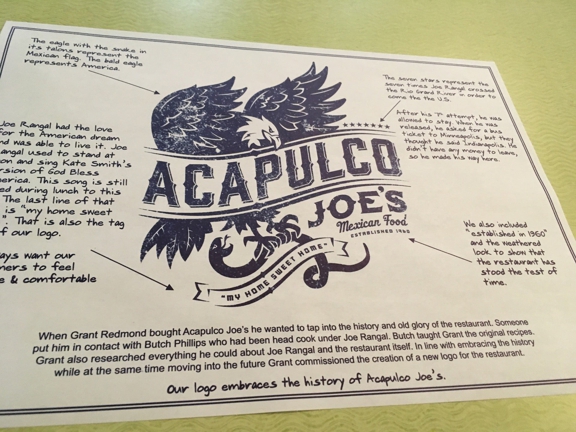 The eagle with the snake in
its talons represent the
Mexican flag. The bald eagle
represents America.
The seven stars represent the
seven times Joe Rangal crossed
the Rio Grand River in order to
come the the U.S.
After his 7th attempt, he was
allowed to stay. When he was
released, he asked for a bus
ticket to Minneapolis, but they
thought he said Indianapolis. He
didn't have any money to leave,
so he made his way here.
Joe Rangal had the love
for the American dream
and was able to live it. Joe
Rangal used to stand at
on and sing Kate Smith's
rsion of God Bless
merica. This song is still
ed during lunch to this
The last line of that
is "my home sweet
". That is also the tag
f our logo.
ays want our
mers to feel
e & comfortable
ACAPULCO
JOE'S
Mexican Food
ESTABLISHED 1960
"MY HOME SWEET HOME"
We also included
"established in 1960"
and the weathered
look to show that
the restaurant has
stood the test of
time.
When Grant Redmond bought Acapulco Joe's he wanted to tap into the history and old glory of the restaurant. Someone
put him in contact with Butch Phillips who had been head cook under Joe Rangal. Butch taught Grant the original recipes.
Grant also researched everything he could about Joe Rangal and the restaurant itself. In line with embracing the history
while at the same time moving into the future Grant commissioned the creation of a new logo for the restaurant.
Our logo embraces the history of Acapulco Joe's.